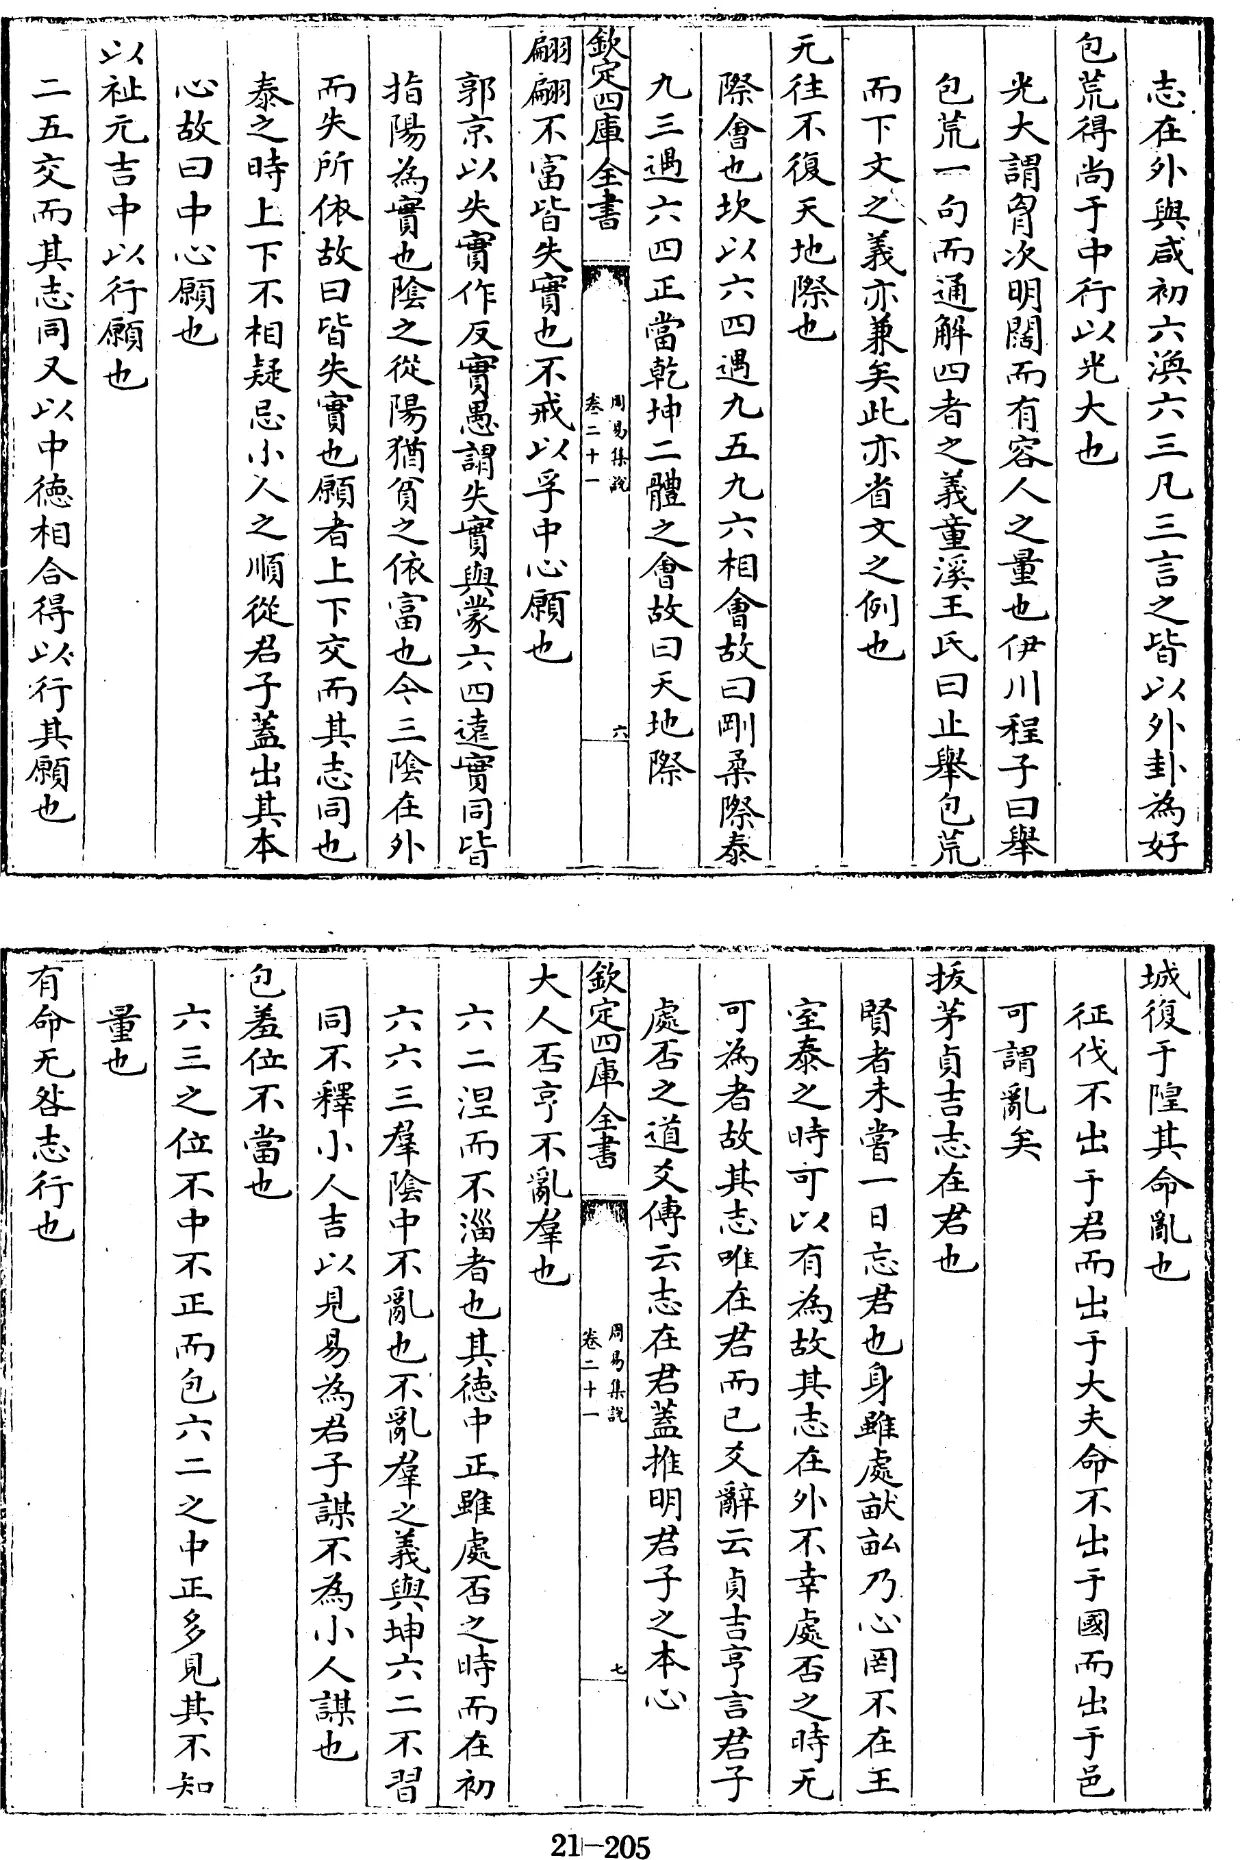 志在外與咸初六渙六三凡三言之皆以外卦為好
包荒得尚于中行以光大也
光大謂胷次明闊而有容人之量也伊川程子曰舉
包荒一句而通解四者之義童溪王氏曰止舉包荒
而下文之義亦兼矣此亦省文之例也
无往不復天地際也
際會也坎以六四遇九五九六相會故曰剛柔際泰
九三遇六四正當乾坤二體之會故曰天地際
欽定四庫全書
周易集說
卷二十一
六
翩翩不富皆失實也不戒以孚中心願也
郭京以失實作反實愚謂失實與蒙六四遠實同皆
指陽為實也陰之從陽猶貧之依富也今三陰在外
而失所依故曰皆失實也願者上下交而其志同也
泰之時上下不相疑忌小人之順從君子蓋出其本
心故曰中心願也
以祉元吉中以行願也
二五交而其志同又以中德相合得以行其願也
城復于隍其命亂也
征伐不出于君而出于大夫命不出于國而出于邑
可謂亂矣
拔茅貞吉志在君也
賢者未嘗一日忘君也身雖處畎畝乃心罔不在王
室泰之時可以有為故其志在外不幸處否之時无
可為者故其志唯在君而已爻辭云貞吉亨言君子
處否之道爻傳云志在君蓋推明君子之本心
欽定四庫全書
周易集說
卷二十一
七
大人否亨不亂羣也
六二涅而不淄者也其德中正雖處否之時而在初
六六三羣陰中不亂也不亂羣之義與坤六二不習
同不釋小人吉以見易為君子謀不為小人謀也
包羞位不當也
六三之位不中不正而包六二之中正多見其不知
量也
有命无咎志行也
21-205